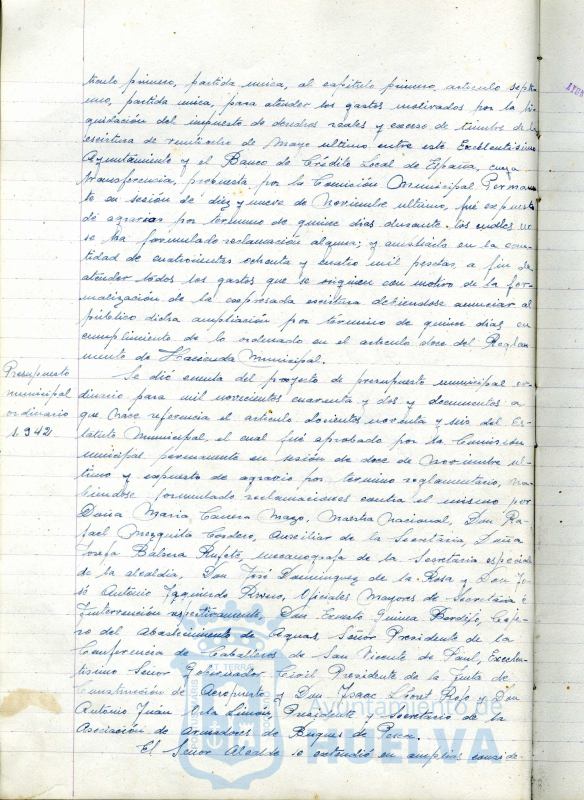 tículo primero, partida única, al capítulo primero, artículo septi-
mo, partida única, para atender los gastos motivados por la li-
quidación del impuesto de derechos reales y exceso de timbre de la
escritura de veintiocho de Mayo último entre este Excelentísimo
Ayuntamiento y el Banco de Crédito Local de España, cuya
transferencia, propuesta por la Comisión Municipal Permanen-
te en sesión de diez y nueve de Noviembre último, fué expuesta
de agravios por término de quince días durante los cuales no
se ha formulado reclamación alguna; y ampliarlo en la can-
tidad de cuatrocientas ochenta y cuatro mil pesetas, a fin de
atender todos los gastos que se originen con motivo de la for-
malización de la expresada escritura debiéndose anunciar al
público dicha ampliación por término de quince días en
cumplimiento de lo ordenado en el artículo doce del Regla-
mento de Hacienda Municipal.
Presupuesto
municipal
ordinario
1.942
Se dió cuenta del proyecto de presupuesto municipal or-
dinario para mil novecientos cuarenta y dos y documentos a
que hace referencia el artículo doscientos noventa y seis del Es-
tatuto Municipal, el cual fué aprobado por la Comisión
municipal permanente en sesión de doce de Noviembre úl-
timo y expuesto de agravio por término reglamentario, ha-
biéndose formulado reclamaciones contra el mismo por
Doña Maria Mazo, Maestra Nacional, Don Ra-
fael Mezquita Cordero, Auxiliar de la Secretaría, Doña
Josefa Balsera Rufete, mecanógrafa de la Secretaría especial
de la alcaldía, Don José Dominguez de la Rosa y Don Jo-
sé Antonio Izquierdo Rivero, Oficiales Mayores de Secretaría é
Intervención respectivamente, Don Ernesto Guinea Bordejo,
ro del Abastecimiento de Aguas Señor Presidente de la
Conferencia de Caballeros de San Vicente de Paul, Excelen-
tísimo Señor Gobernador Civil Presidente de la Junta de
Construcción de Aeropuerto y Don Isaac Rojo y Don
Antonio Juan Presidente y Secretario de la
Asociación de Armadores de Buques de Pesca.
El Señor Alcalde se extendió en amplias conside-
Ayuntamiento de
HUELVA